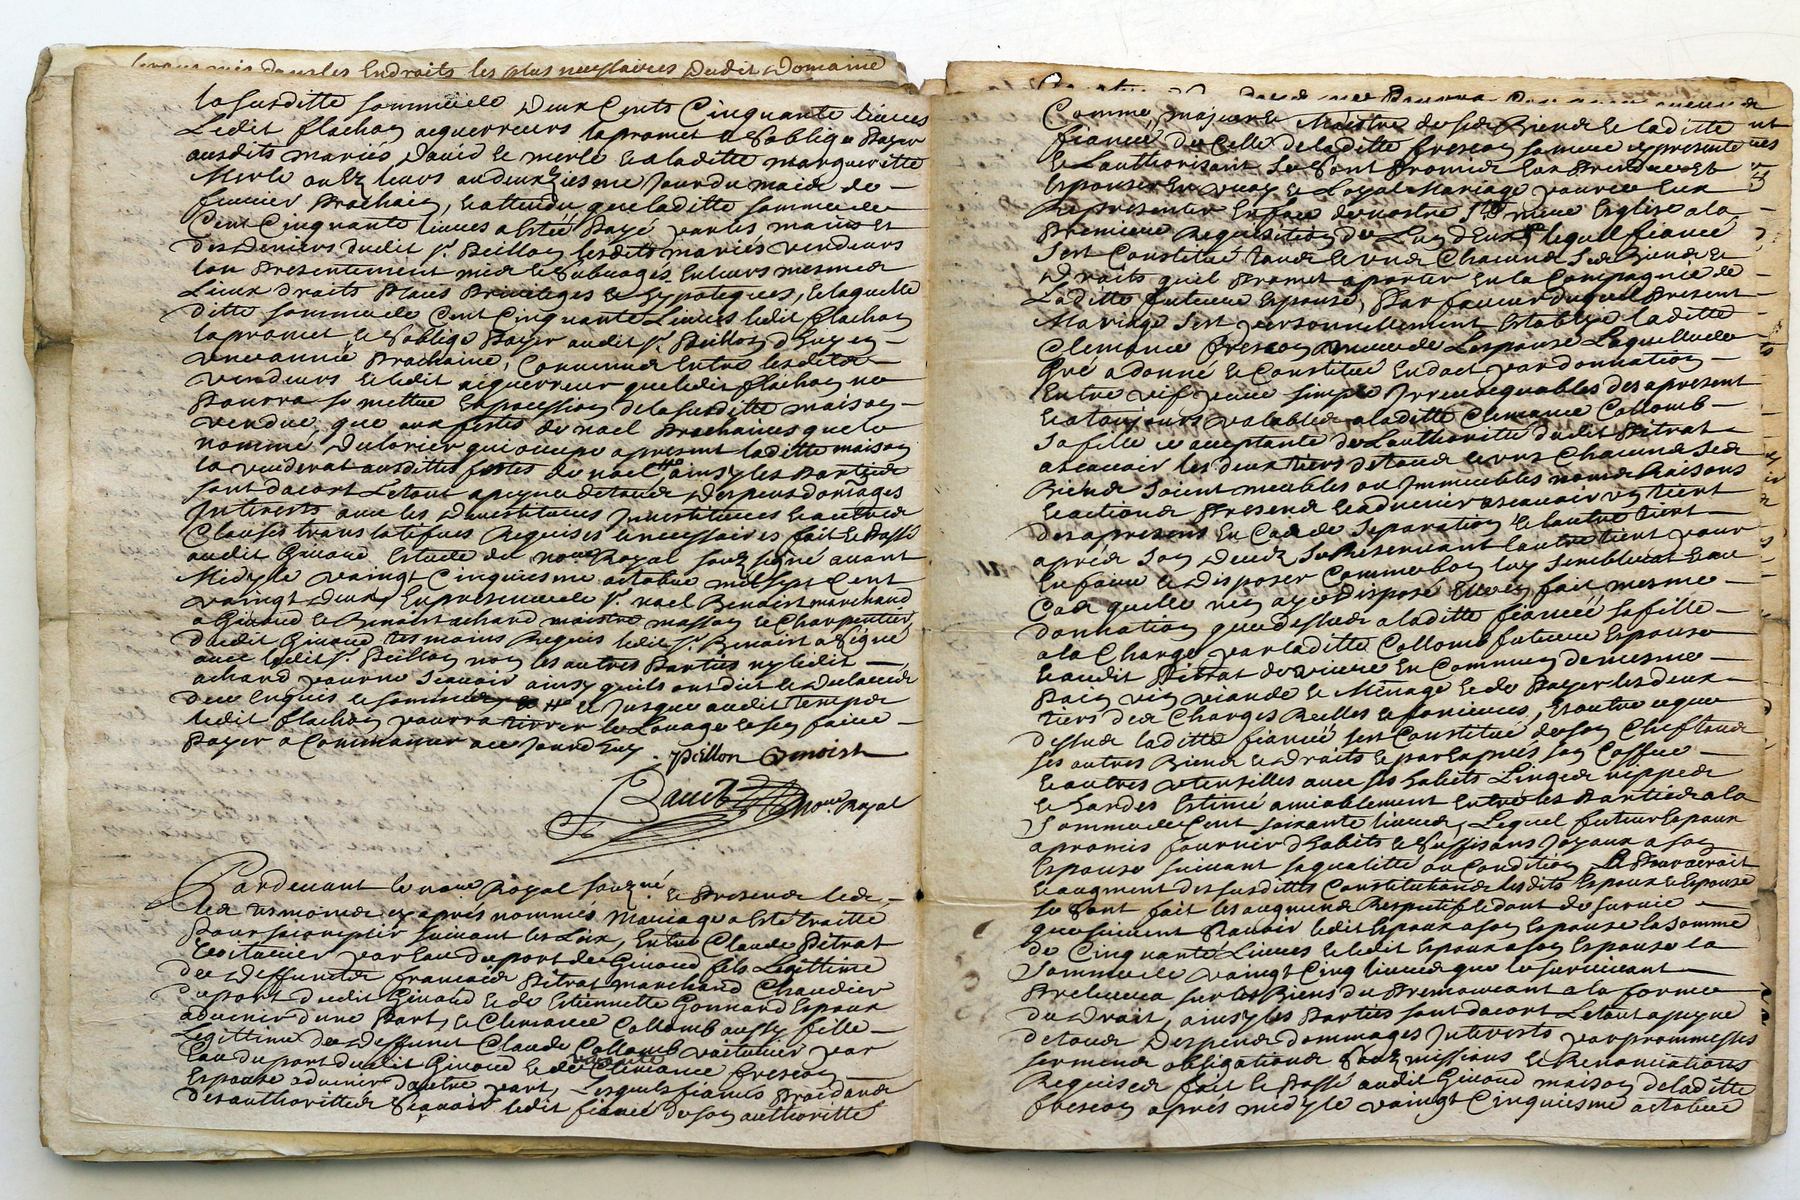 mis dans les Endroits les plus necessaires Dudit Domaine
la susditte somme de Deux Cents Cinquante Livres
Ledit flachon acquerreurs la promet & soblige Payer
ausdits mariés David & merle & a laditte margueritte
Merle ou Ez leurs au deuxziesme Jour du mois de
feuvrier Prochain, & attendu que laditte somme de
Cent Cinquante Livres a Esté Payé par les mains Et
Des Deniers dudit Sr. Peillon lesdits mariés vendeurs
lon Presentement mis & subrogés En leurs mesmes
Lieux droits Places Privileges & hypoteques, & laquelle
ditte somme de Cent Cinquante Livres ledit flachon
la promet & soblige Payer audit Sr. Peillon d'huy en
une année Prochaine, Convenus Entre lesdits
vendeurs & ledit acquerreur que ledit flachon ne
Pourra se mettre En possession de la susditte maison
vendue, que aux festes de noel Prochaines que le
nommé Dulorier qui occupe a present laditte maison
la vuiderat ausdittes festes de noel ainsy les Parties
sont dacort Letout a peyne de tous Despens domages
Interests avec les Devestitures Investitures & autres
Clauses translatifves Requises & necessaires fait & Passé
audit Givord Estude du nore. Royal souzsigné avant
Midy le vaingt Cinquiesme octobre mil sept Cent
vaingt deux, En presence de Sr. noel Benoist marchand
a Givord & Benoist achard maistre masson & Charpentier
dudit Givord tesmoins Requis ledit Sr. Benoist a signé
avec ledit Sr. Peillon non les autres Parties ny ledit
achard pour ne scavoir ainsy quils ont dict & Declaré
de ce Enquis & sommés & Jusque audit temps
ledit flachon pourra tirrer le Louage & sen faire
Payer a Commancer ace Jourd'huy
Peillon Benoist
nore. Royal
Pardevant le nore. Royal souzné. & Presens les
tesmoins cy aprés nommés Mariage a Esté traitté
Pour saccomplir suivant les Loix, Entre Claude Pitrat
voiturier par Eau du port de Givord fils Legittime
des Deffuncts francois Pitrat marchand Chaudier
du port dudit Givord & de Estiennette Gonnard Espoux
advenir dune Part, & Clemance Collomb aussy fille
Legittime de Deffunct Claude Collomb voiturier par
Eau du port dudit Givord & de vivante Clemance frescon
Espouse advenir dautre part, Lesquels fiancés Procedans
Des authorittés scavoir ledit fiancé de son authoritté
Comme majeur & Maistre de ses Biens & laditte
fiancé de Celle de laditte frescon sa mere cy presente
& Lauthorisant se sont Promis Eux Prendre Et
Espouser En vray & Loyal Mariage pour ce Eux
Representer En face de nostre Ste. mere Eglise a la
Premiere Requisition de Lun d'Eux, lequel fiancé
sest Constitué tous & uns Chacuns ses Biens &
Droits quil Promet aporter En la Compagnie de
Laditte future Espouse, Par faveur duquel Present
Mariage sest personnellement Establye laditte
Clemance frescon mere de Lespouse Laquelle de
Gré a donné & Constitué En dot par donnation
Entre vifs pure simple Irrevocquables des apresent
& atousjours valables a laditte Clemance Collomb
sa fille ce acceptante de Lauthoritté dudit Pitrat
a scavoir les deux tiers de tous & uns Chacuns ses
Biens soient meubles ou Immeubles noms Raisons
& actions Presens & advenir a scavoir un tiers
des apresens En Cas de separation & lautre tiers
aprés son Decés se Reservant lautre tiers pour
En faire & Disposer Comme bon luy semblerat & au
Cas quelle nen aye disposé Elle En fait mesme
donnation que dessus a laditte fiancée sa fille
a la Charge par laditte Collomb future Espouse
& audit Pitrat de vivre En Commun de mesme
Pain vin viande & Menage & de Payer les deux
tiers des Charges Reelles & foncieres, Et outre ce que
dessus laditte fiancée sest Constitué de son Chef tous
ses autres Biens & Droits & par Exprés son Coffre
& autres utensilles avec ses habits Linges nippes
& hardes Estimé amiablement Entre les Parties a la
somme de Cent soixante Livres, Lequel futur Espoux
a promis fournir d'habits & suffisans Joyaux a son
Espouse suivant sa qualitté ou Condition,
& augment des susdittes Constitutions lesdits Espoux & Espouse
se sont fait les augmens Respectifs & dont de survie
ledit Espoux a son Espouse la somme
de Cinquante Livres & ledit Espoux a son Espouse la
somme de vaingt Cinq Livres que le survivant
Prelevera sur les Biens du Premourant a la forme
du Droit, ainsy les Parties sont dacort Letout a peyne
de tous Despens dommages Interests par prommesses
sermens obligations souzmissions & Renonciations
Requises fait & Passé audit Givord maison de laditte
frescon aprés midy le vaingt Cinquiesme octobre